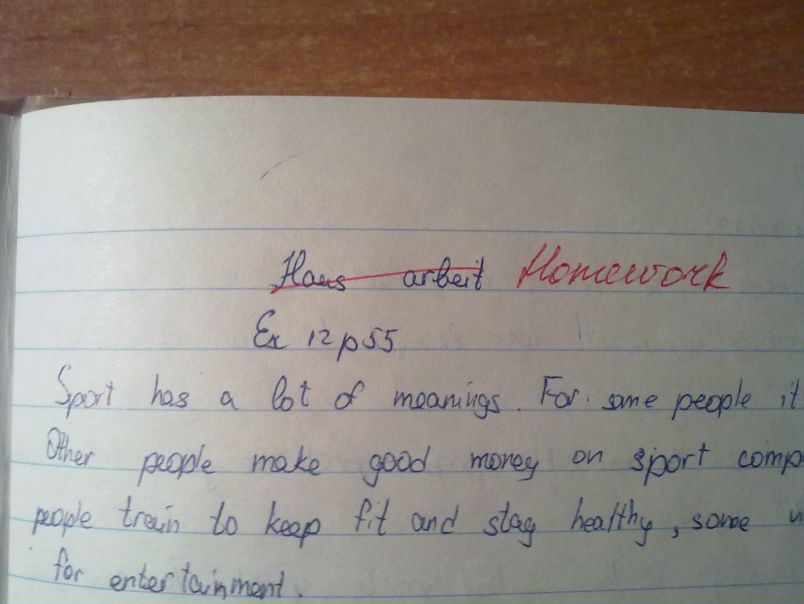 Haus arbeit Homework
Ex 12 p 55
Sport has a lot of meanings. For some people it
Other people make good money on sport comp
people train to keep fit and stay healthy, some
for entertainment.